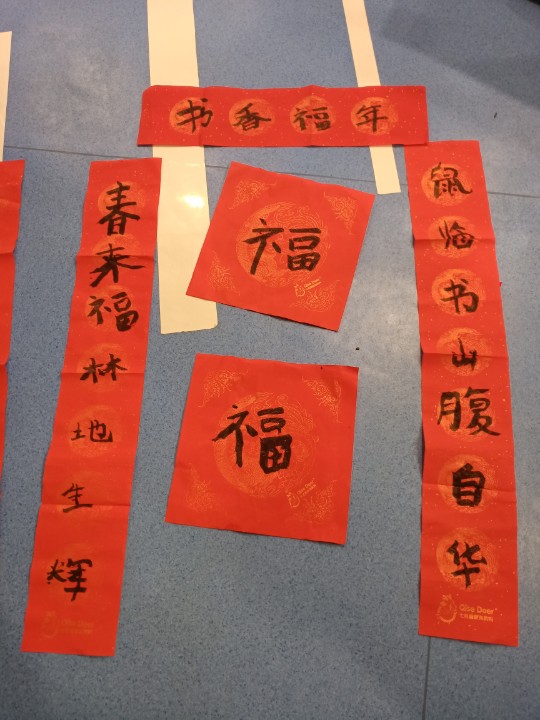 书香福年
鼠临书山腹自华
春来福林地生辉
福
福
Qice Deer